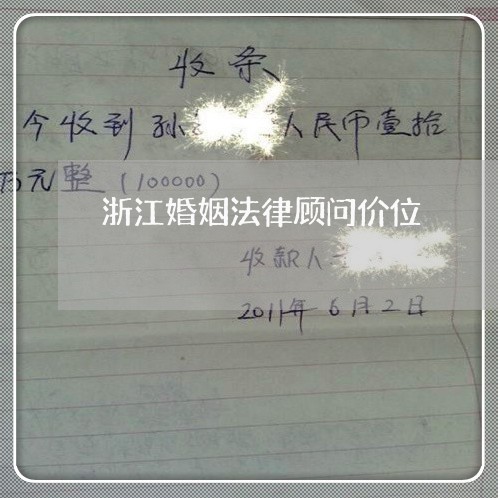 收条
今收到孙 人民币壹拾
万元整(100000)
浙江婚姻法律顾问价位
收款人
2011年6月2日